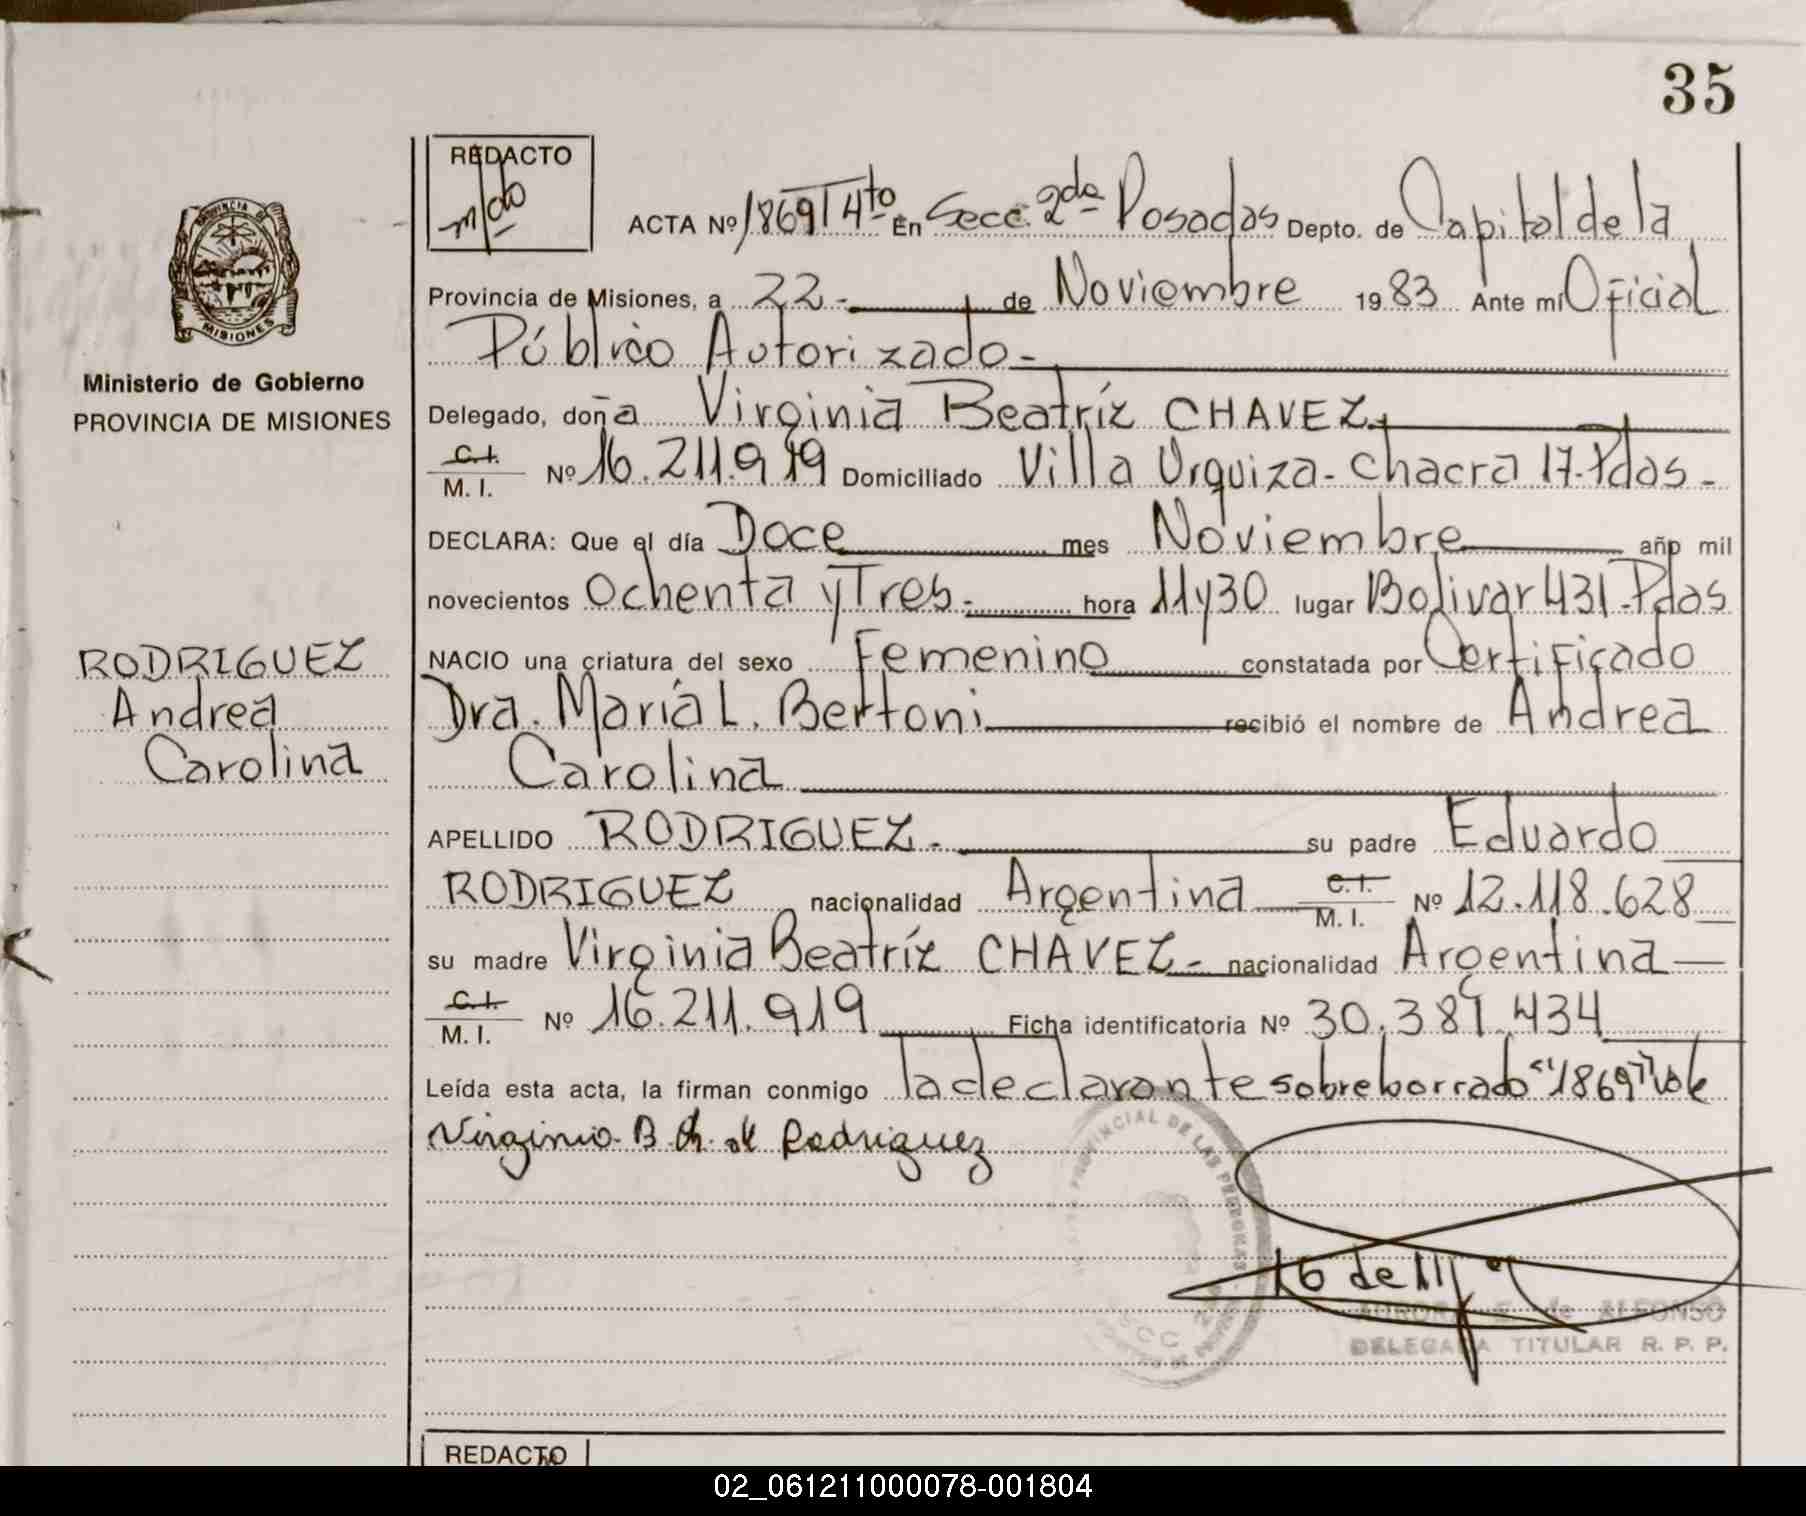 35
REDACTO
ACTA Nº 1869 T 4to En Secc. 2da Posadas Depto. de Capital de la
PROVINCIA DE
MISIONES
Provincia de Misiones, a 22.- de Noviembre 1983 Ante mí Oficial
Público Autorizado.-
Ministerio de Gobierno
PROVINCIA DE MISIONES
Delegado, doña Virginia Beatríz CHAVEZ.-
C.I.
M. I. Nº 16.211.919 Domiciliado Villa Urquiza- chacra 17- Pdas -
DECLARA: Que el día Doce mes Noviembre año mil
novecientos Ochenta y Tres.- hora 11y30 lugar Bolivar 431- Pdas
RODRIGUEZ
Andrea
Carolina
NACIO una criatura del sexo Femenino constatada por Certificado
Dra. María L. Bertoni recibió el nombre de Andrea
Carolina
APELLIDO RODRIGUEZ.- su padre Eduardo
RODRIGUEZ nacionalidad Argentina C.I.
M. I. Nº 12.118.628
su madre Virginia Beatríz CHAVEZ.- nacionalidad Argentina
C.I.
M. I. Nº 16.211.919 Ficha identificatoria Nº 30.389.434
Leída esta acta, la firman conmigo la declarante sobreborrado "1869" vale
Virginia B. Ch. de Rodriguez
PROVINCIAL DE LAS PERSONAS
AURORA E. de ALFONSO
DELEGADA TITULAR R. P. P.
REDACTO
02_061211000078-001804